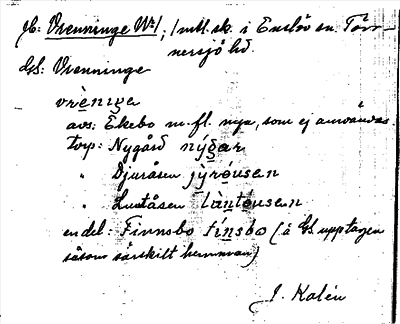 Jb: Vrenninge Nº 1, 1 mtl. sk. i Enslöv sn. Tön-
nersjö hd.
GS: Vrenninge
vrèniŋe
avs: Ekebo m. fl. nya, som ej användas.
torp: Nygård nýgar
" Djuråsen jyròusen
" Luståsen
endel: Finnsbo finsbo (å GS upptagen
såsom särskilt hemman)
J. Kalén